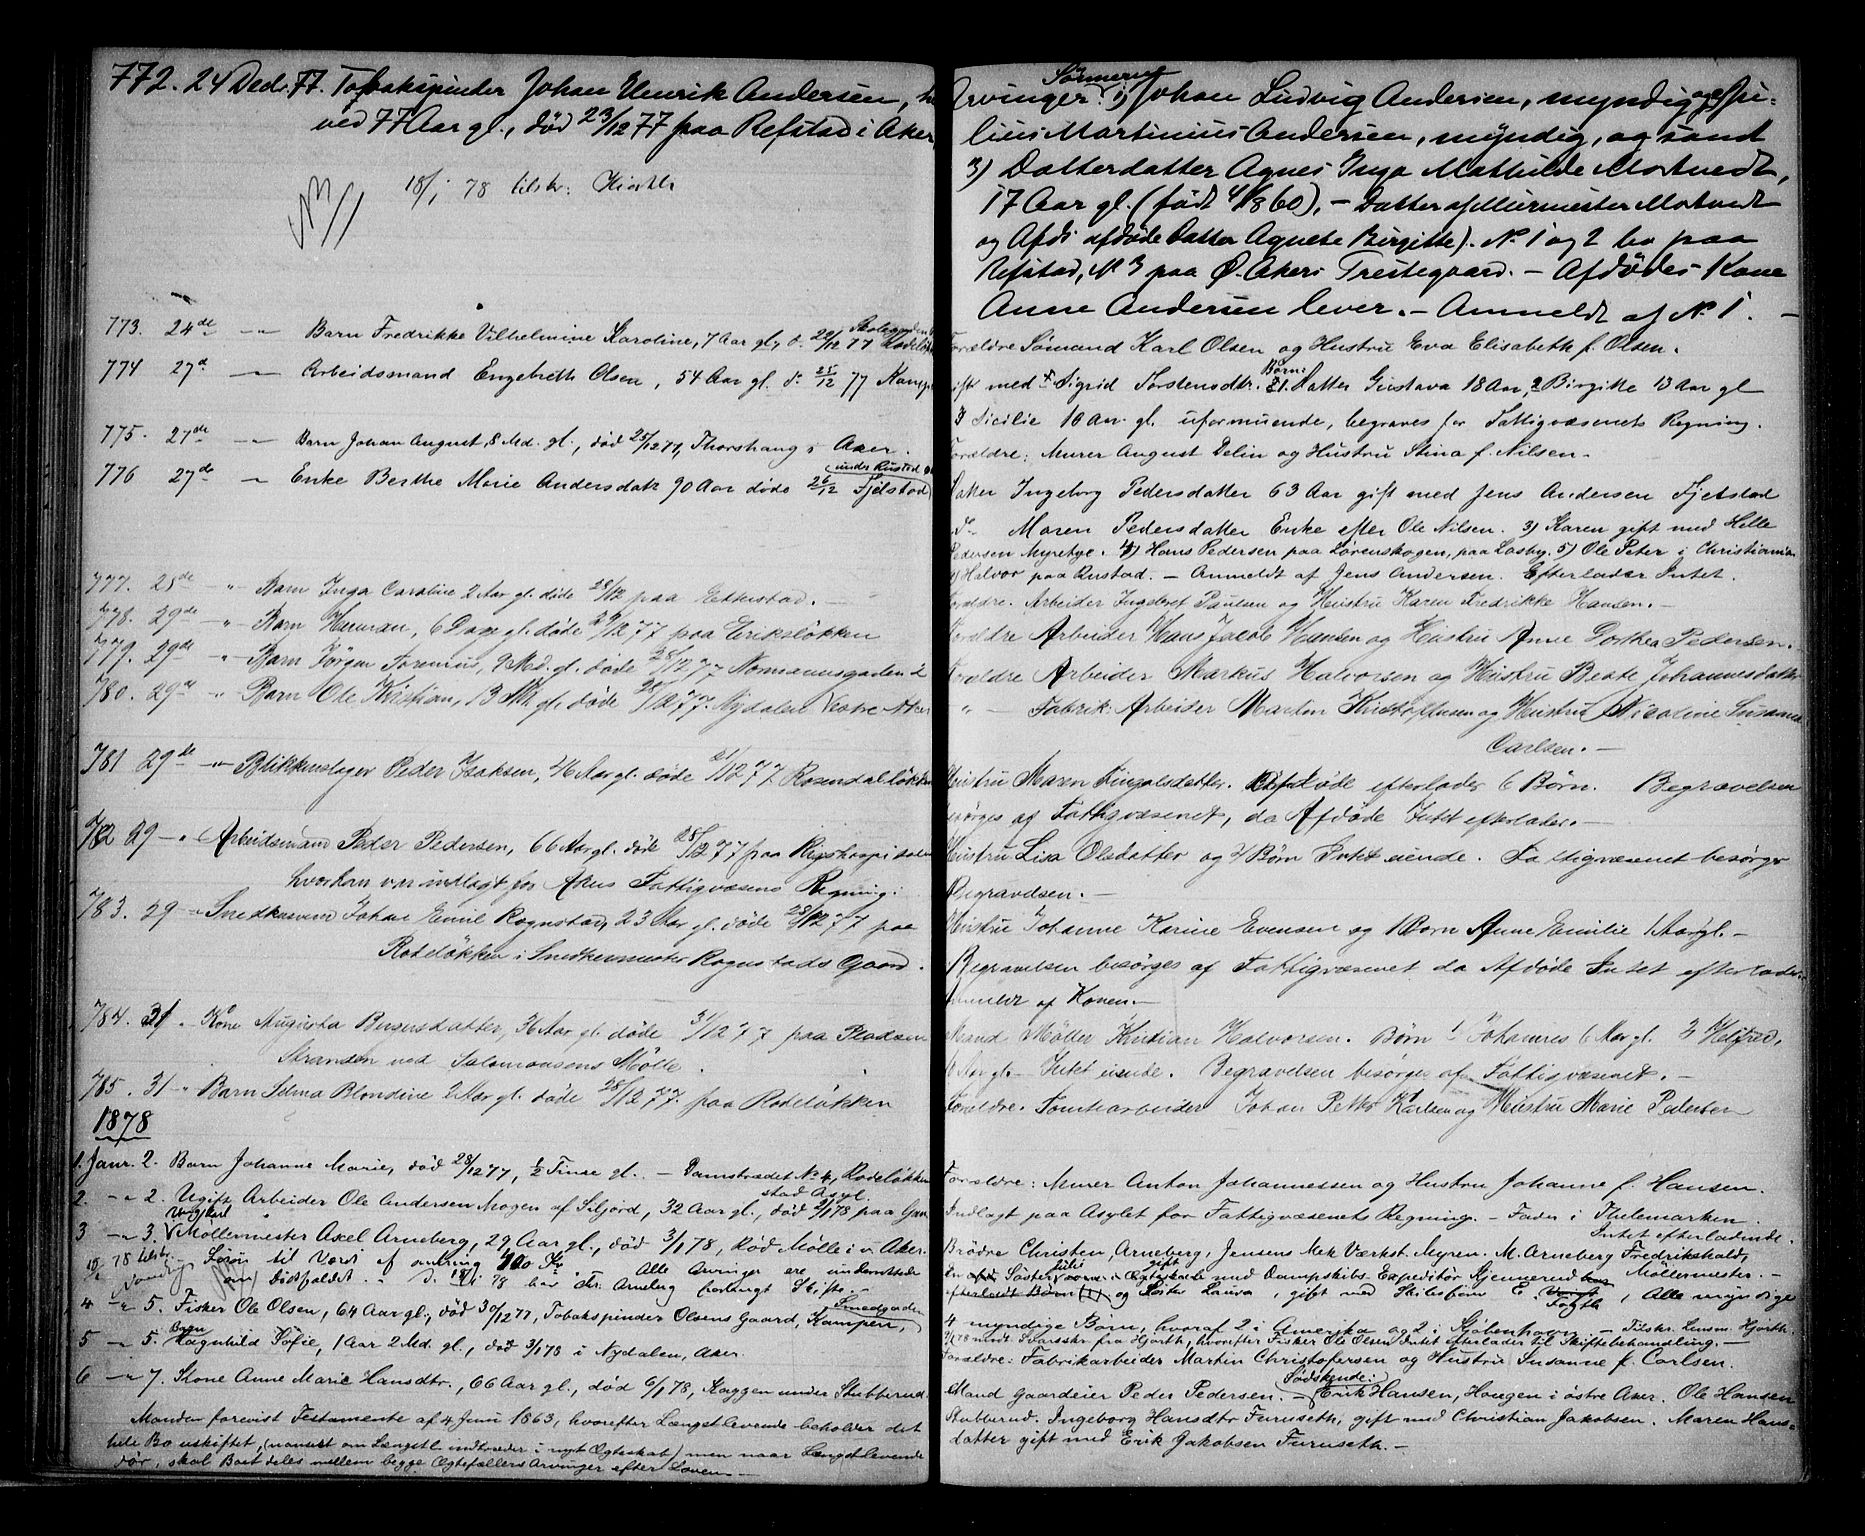 772. 24 Decbr. 77. Tobakspinder Johan Henrik Andersen,
ved 77 Aar gl., død 23/12 77 paa Refstad i Aker
18/1 78 tilskr. Hjorth
773. 24de -"- Barn Fredrikke Vilhelmine Karoline, 7 Aar gl, d. 22/12 77 Rodeløk
774 27d -"- Arbeidsmand Engebreth Olsen, 54 Aar gl. d. 25/12 77 Kamp
775. 27de -"- Barn Johan August, 8 Md. gl., død 25/12 77, Thorshaug i Aker.
under Rustad
776 27de -"- Enke Berthe Marie Andersdatr 90 Aar døde 26/12 Fjelstad
777. 28de -"- Barn Inga Caroline 2 Aar gl. døde 28/12 paa Ekkestad.
778. 29de -"- Barn Herman, 6 Dage gl. døde 29/12 77 paa Eriksløkken
779. 29de " Barn Jørgen Sorenius, 9 Md. gl. døde 28/12 77 Normannsgaden 2
780. 29de " Barn Ole Kristian, 13 gl. døde 28/12 77. Nydalen Vestre Aker
781 29de -"- Blikkenslager Peder Isaksen, 46 Aar gl. døde 21/12 77 Rosendalløkken
782 29 -"- Arbeidsmand Peder Pedersen, 66 Aar gl. døde 28/12 77 paa Rigshospitalet
hvorhan var indlagt for Akers Fattigvæsens Regning.
783. 29 -"- Snedkersvend Johan Emil Rognstad, 23 Aar gl. døde 28/12 77 paa
Rodeløkken i Snedkermester Rognstads Gaard.
784. 31 " Kone Augusta Bergersdatter, 36 Aar gl. døde 31/12 77 paa Pladsen
Stranden ved Salomonsens Mølle.
785. 31 -"- Barn Selma Blondine 2 Aar gl. døde 28/12 77. paa Rodeløkken
1878
1. Janr. 2. Barn Johanne Marie, død 28/12 77, 1/2 Time gl. - Damstrædet No 4, Rodeløkken
2 -"- 2. Ugift Arbeider Ole Andersen Mogen af Siljord, 32 Aar gl., død 2/1 78 paa Gau
stad Asyl.
Ungkarl
3 -"- 3. Møllermester Axel Arneberg, 29 Aar gl., død 3/1 78, Rød Mølle i v. Aker.
78 tilskr. til Værdi af omkring 400 Kr. Alle Arvinger ere underrettede
om Dødsfaldet. - D. 78 har Arneberg forlangt Skifte.
4 -"- 5. Fisker Ole Olsen, 64 Aar gl., død 30/12 77, Tobakspinder Olsens Gaard, Smedgaden Kampen
5 -"- 5. Barn Ragnhild Sofie, 1 Aar 2 Md. gl., død 3/1 78 i Nydalen, Aker.
6 -"- 7. Kone Anne Marie Hansdtr., 66 Aar gl., død 6/1 78, Kaggen under Stubberud.
Manden forevist Testamente af 4 Juni 1863, hvorefter Længstlevende beholder det
hele Bo uskiftet, (uanseet om Længstl. indtræder i nyt Ægteskab) men naar Længstlevende
dør, skal Boet deles mellem begge Ægtefællers Arvinger efter Loven.
Arvinger: Sønnerne 1) Johan Ludvig Andersen, myndig,
lius Martinius Andersen, myndig, og samt
3) Datterdatter Agnes Inga Mathilde Mortvedt,
17 Aar gl. (født 4/8 60), - Datter af Murmester Mortvedt
og Afds afdøde Datter Agnete Birgitte). No 1 og 2 bo paa
Refstad, No 3 paa Ø. Akers Prestegaard. - Afdødes Kone
Anne Andersen lever. - Anmeldt af No 1.
Forældre Sømand Karl Olsen og Hustru Eva Elisabeth f. Olsen.
gift med Sigrid Torstensdtr. Børn: 1. Datter Gustava 18 Aar, 2 Birgitte 13 Aar gl
3 Sicilie 10 Aar gl. uformuende, begraves for Fattigvæsenets Regning.
Forældre: Murer August Delin og Hustru Stina f. Nilsen.
Datter Ingeborg Pedersdatter 63 Aar gift med Jens Andersen Fjelstad
do Maren Pedersdatter Enke efter Ole Nilsen. 3) Karen gift med Helle
Pedersen Myretye. 4) Hans Pedersen paa Lørenskogen, paa Losby. 5) Ole Peter i Christiania
6) Halvor paa Rustad. - Anmeldt af Jens Andersen. Efterlader Intet.
Forældre. Arbeider Ingebret Paulsen og Hustru Karen Fredrikke Hansen.
Forældre Arbeider Hans Jacob Hansen og Hustru Anne Dorthea Pedersen.
Forældre Arbeider Markus Halvorsen og Hustru Beate Johannesdatter
" - Fabrik Arbeider Martin Kristoffersen og Hustru Nicoline Susanne
Carlsen.
Hustru Maren Afdøde efterlader 6 Børn. Begravelsen
besørges af Fattigvæsenet, da Afdøde Intet efterlader.
Hustru Lisa Olsdatter og Børn Intet eiende. Fattigvæsenet besørger
Begravelsen.
Hustru Johanne Karine Evensen og 1 Barn Anne Emilie 1 Aar gl.
Begravelsen besørges af Fattigvæsenet da Afdøde Intet efterlader.
Anmeldt af Konen.
Mand Møller Kristian Halvorsen. Børn 1) Johannes 6 Aar gl. 2)
Aar gl. Intet eiende. Begravelsen besørges af Fattigvæsenet.
Forældre. Tomtearbeider Johan Petter Karlsen og Hustru Marie Pedersen
Forældre: Murer Anton Johannessen og Hustru Johanne f. Hansen.
Indlagt paa Asylet for Fattigvæsenets Regning. - Fader i Thelemarken.
Intet efterladende.
Brødre Christen Arneberg, Jensens Mek Værkst. Myren. M. Arneberg Fredrikshald,
Søster Julie gift med Dampskibs-Expeditør Møllermester.
efterladt Børn (1) og Søster Laura, gift med E. Fogth, Alle myndige
4 myndige Børn, hvoraf 2 i Amerika og 2 i Kjøbenhavn - Tilskr. Lensm. Hjorth.
fra Hjorth, hvorefter Fisker Ole Olsen Intet efterlader til Skiftebehandling.
Forældre: Fabrikarbeider Martin Christofersen og Hustru Susanne f. Carlsen.
Mand Gaardeier Peder Pedersen. - Sødskende: Erik Hansen, Haugen i østre Aker. Ole Hansen
Stubberud. Ingeborg Hansdtr Furuseth, gift med Christian Jakobsen. Maren Hans-
datter gift med Erik Jakobsen Furuseth.